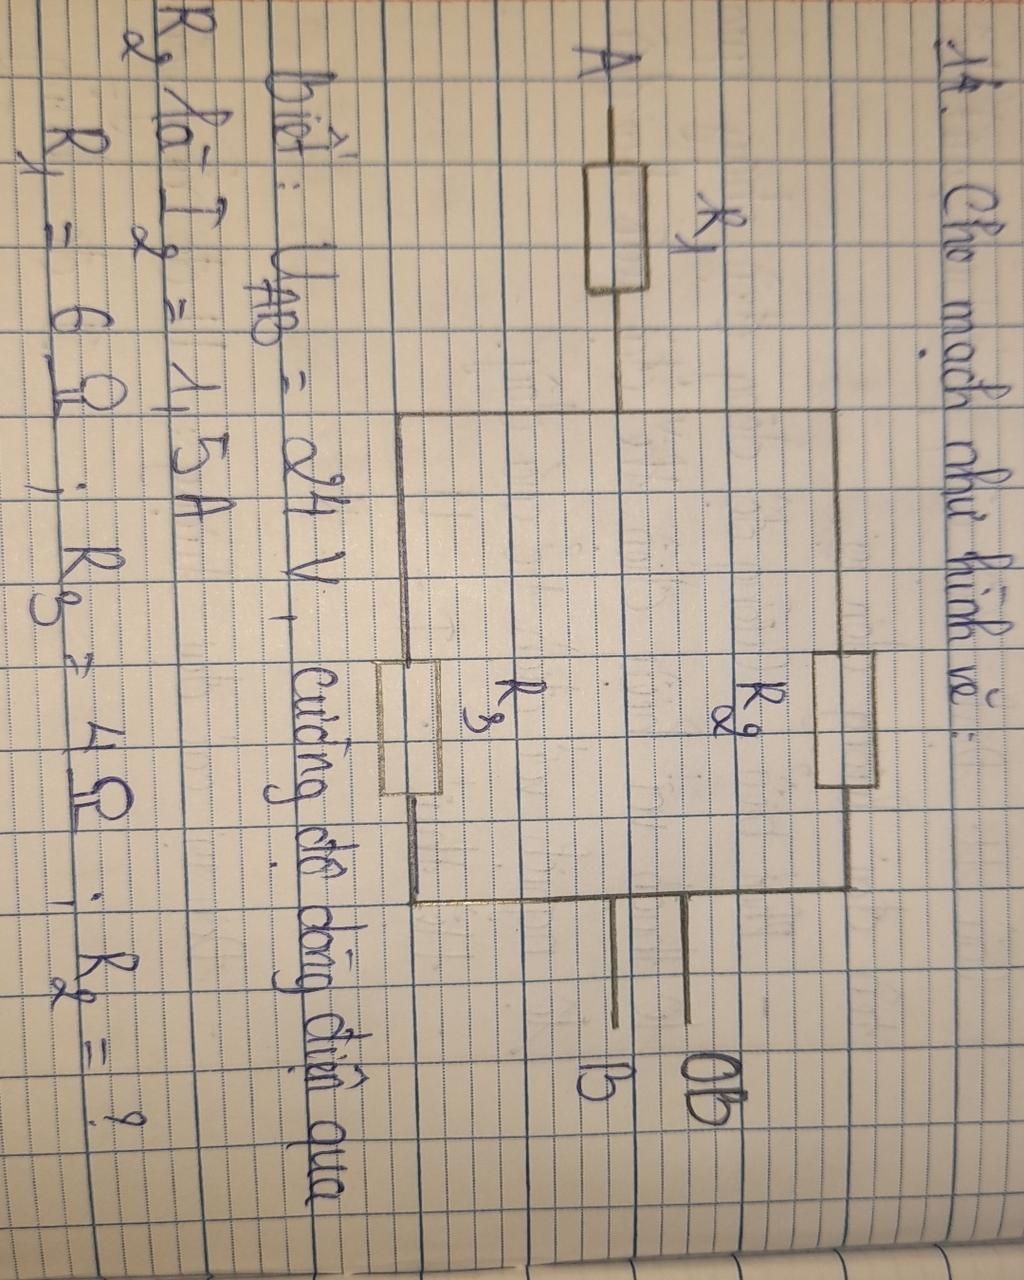 14. Cho mạch như hình vẽ:
R1
A
R2
R3
B
B
biết: UAB = 24 V, cường độ dòng điện qua
R2 là I2 = 1,5A
R1 = 6 Ω ; R3 = 4 Ω ; R2 = ?